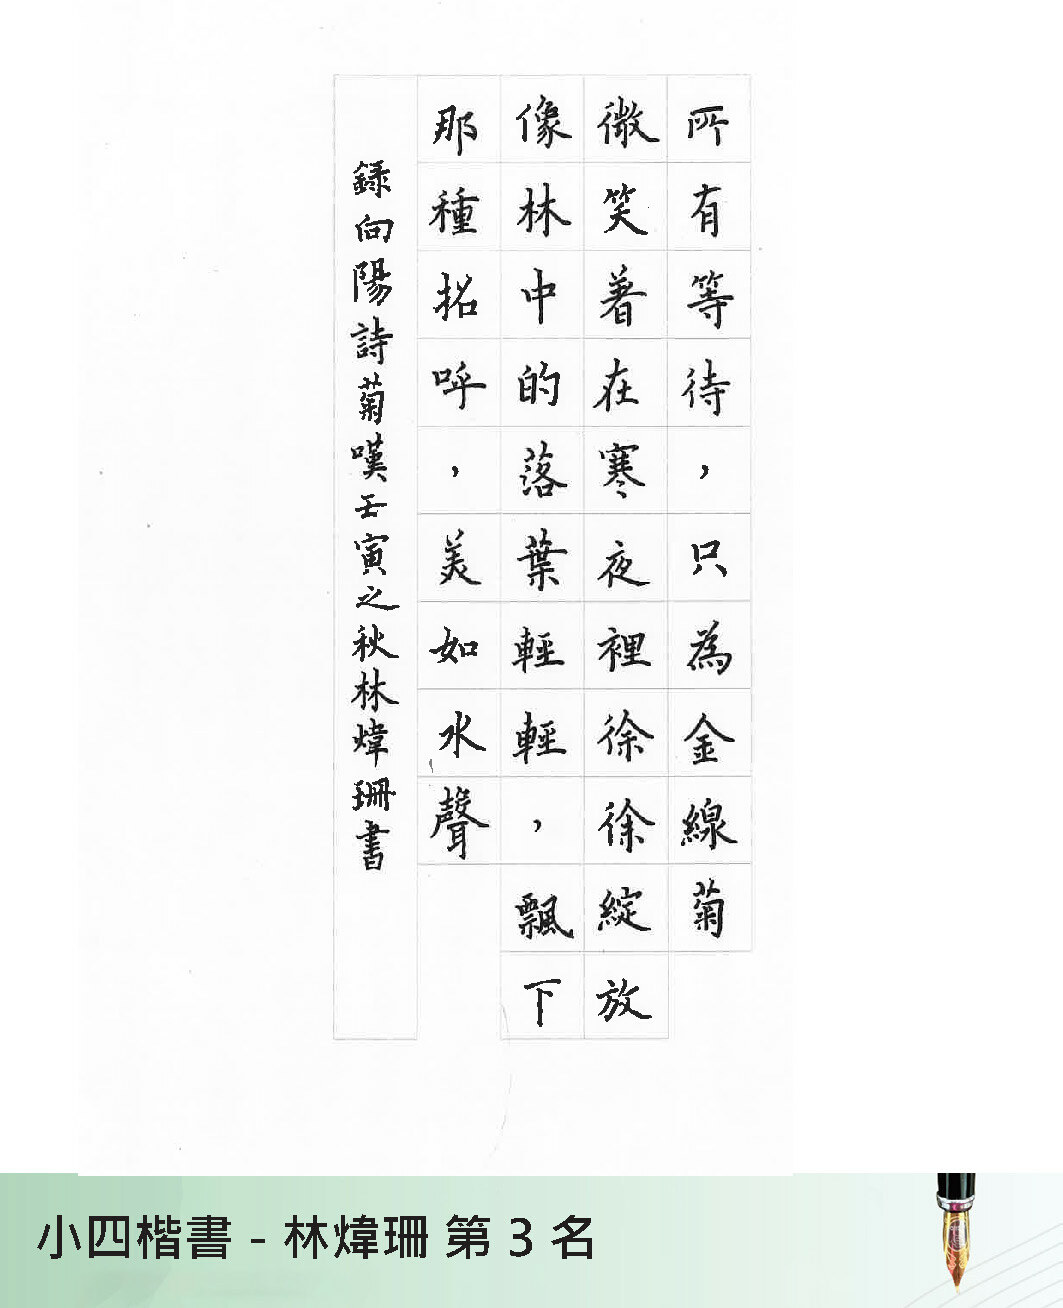 所有等待，只為金線菊
微笑著在寒夜裡徐徐綻放
像林中的落葉輕輕，飄下
那種招呼，美如水聲
錄向陽詩菊嘆壬寅之秋林煒珊書
小四楷書 - 林煒珊 第 3 名